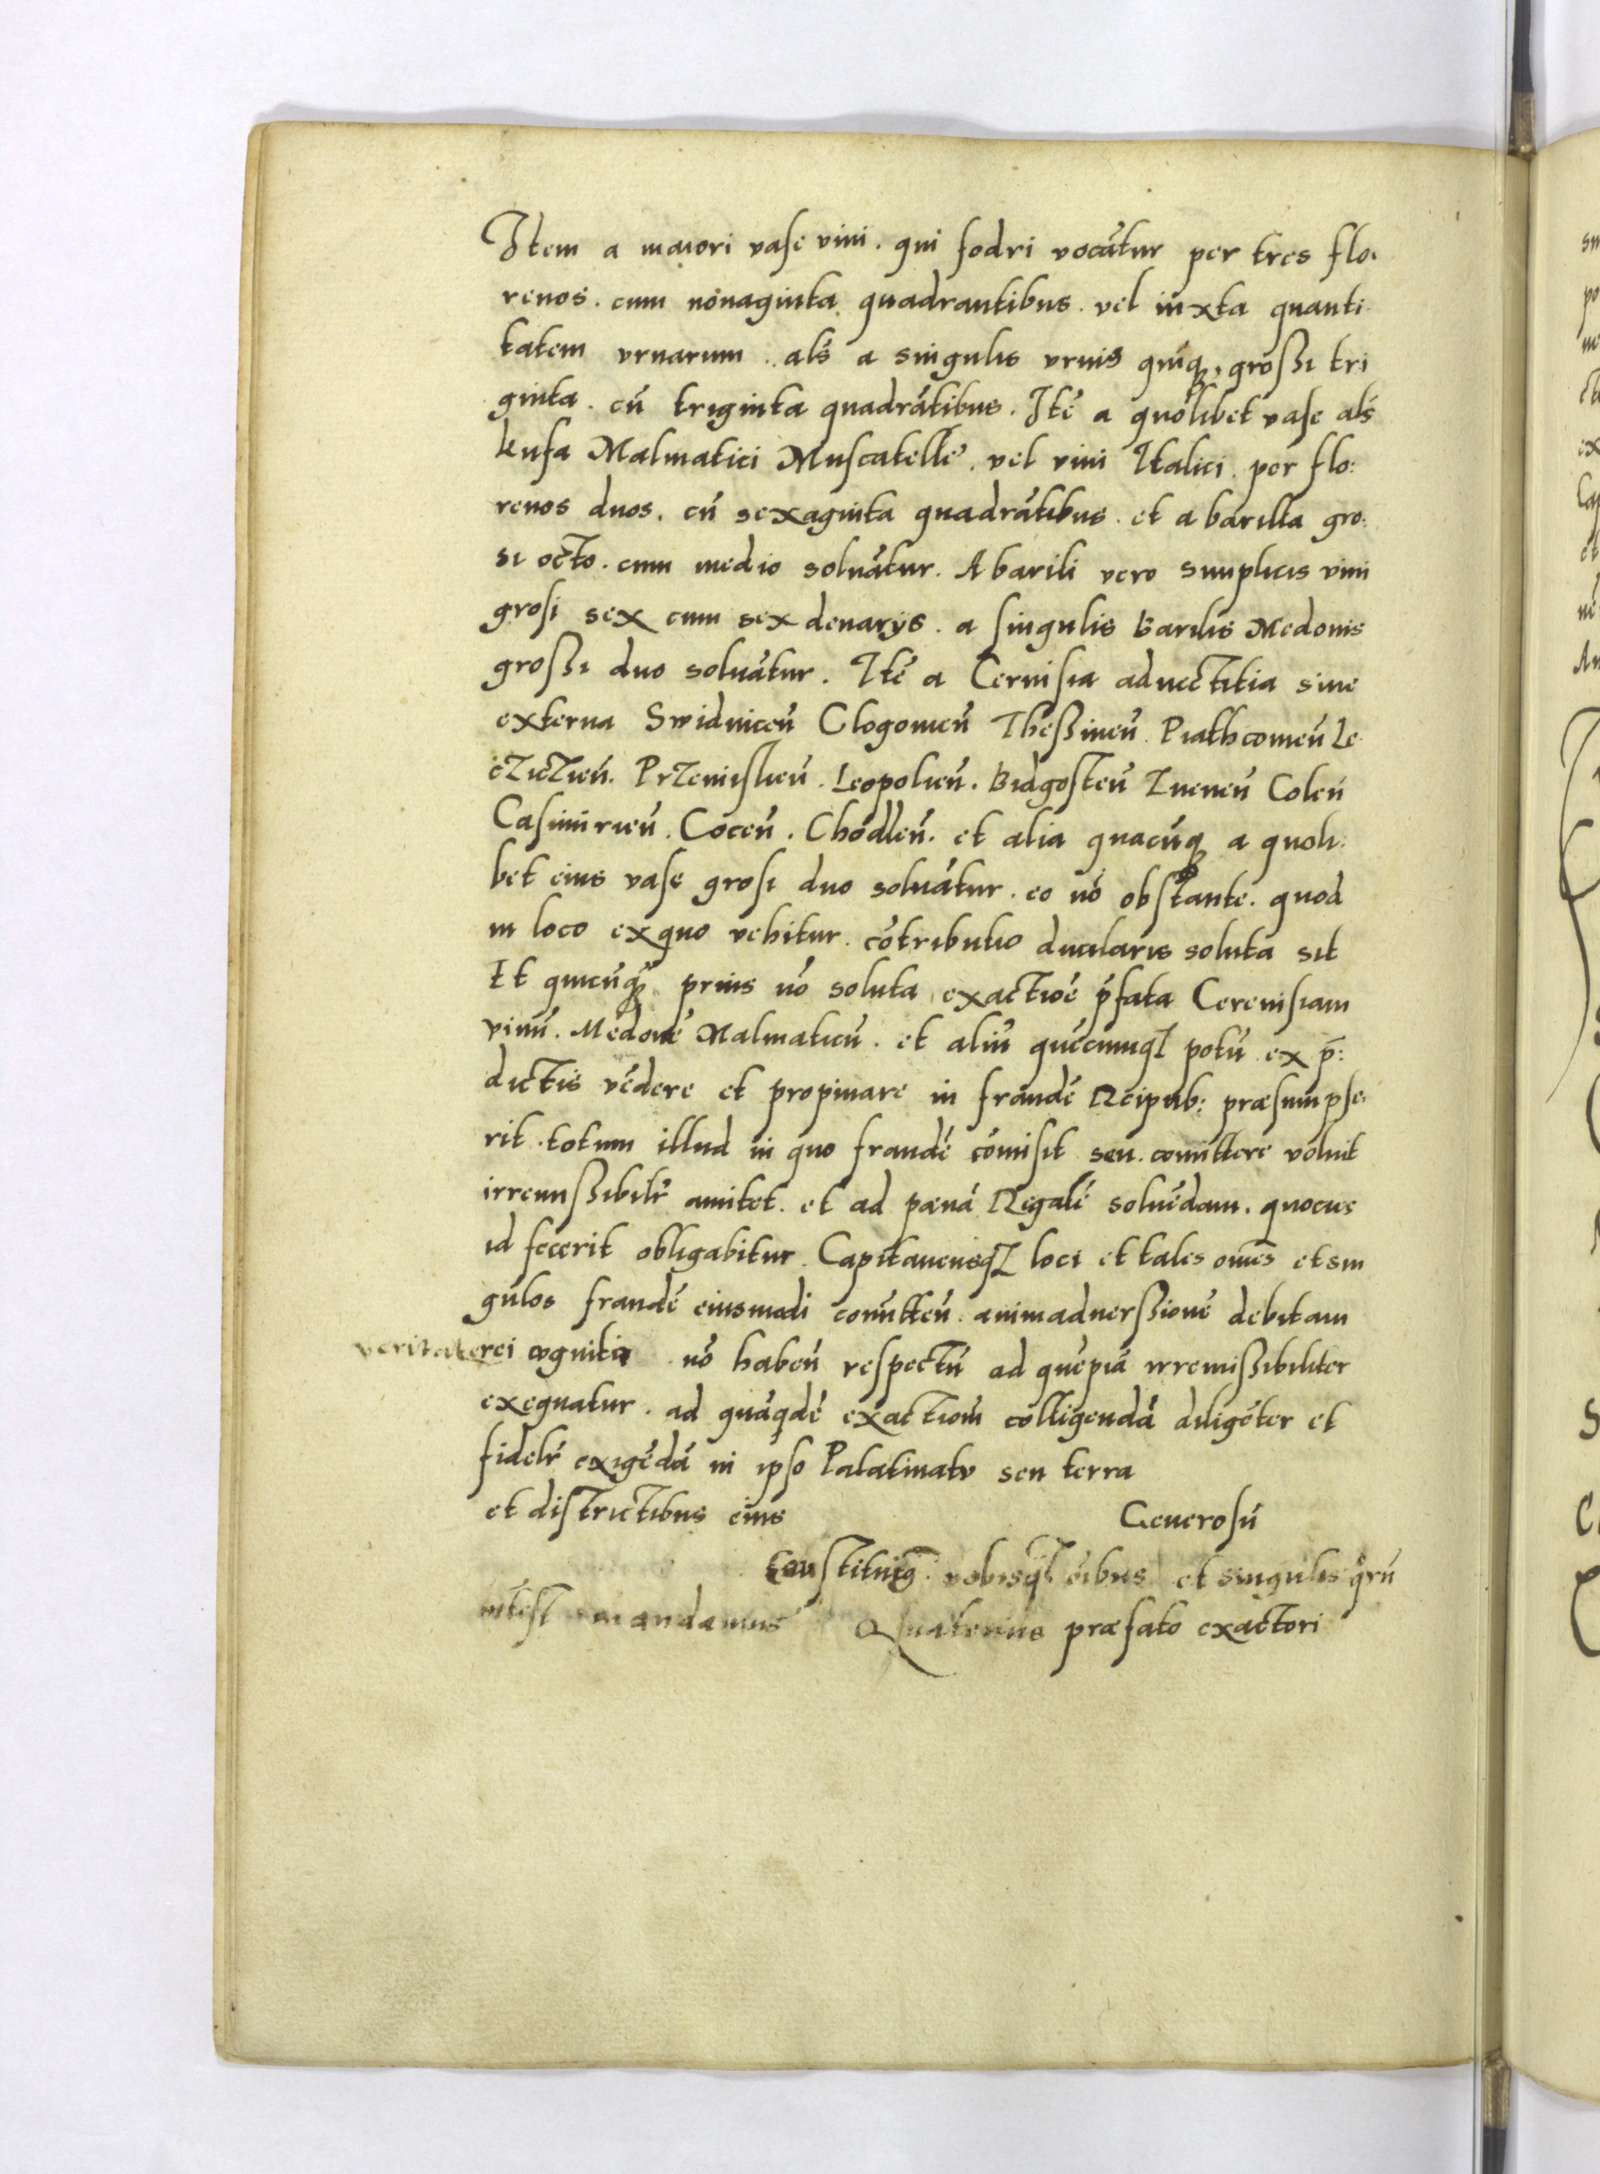 Item a maiori vase vini. qui fodri vocātur per tres flo:
renos. cum nonaginta quadrantibus. vel iuxta quanti
tatem vrnarum. als a singulis vrnis quīqȝ, grossi tri
ginta. cū triginta quadrātibus. Itē a quolibet vase als
kufa Malmatici Muscatelle. vel vini Italici. per flo:
renos duos. cū sexaginta quadrātibus. et a barilla gro:
si octo. cum medio soluātur. A barili vero simplicis vini
grosi sex cum sex denarys. a singulis Barilis Medonis
grossi duo soluātur. Itē a Ceruisia aductitia siue
externa Swidniceñ Glogouieñ Thessineñ Piathcomeñ Le
czicieñ. Przemislieñ. Leopolieñ. Bidgosteñ Zneneñ Coleñ
Casimirieñ. Coceñ. Chodleñ. et alia quacūqȝ a quoli:
bet eius vase grosi duo soluātur. eo nō obstante. quod
in loco ex quo vehitur. cōtributio ducilaris soluta sit
Et quicūqȝ prius nō soluta exactioē p̄fata Cereuisiam
vinū. Medonē Malmaticū. et aliū quēcumqȝ potū ex p̄:
dictis vēdere et propinare in fraudē Reipub: præsumpse:
rit. totum illud in quo fraudē cōmisit seu. comittere voluit
irremissibilr̄ amitet. et ad pænā Regalē soluēdam. quocies
id fecerit obligabitur. Capitaneusqȝ loci et tales oēs et sin
gulos fraudē eiusmodi comitteñ. animaduerssionē debitam
veritate rei cognita nō habeñ respectū ad quēpiā irremissibiliter
exequatur. ad quāqdē exactionē colligendā diligēter et
fidelr̄ exigēdā in ipso Palatinatu seu terra
et districtibus eius Generosū
Constituiḡ. vobisqȝ oībus et singulis qr̄ū
intēst mandamus Quatenus præfato exactori